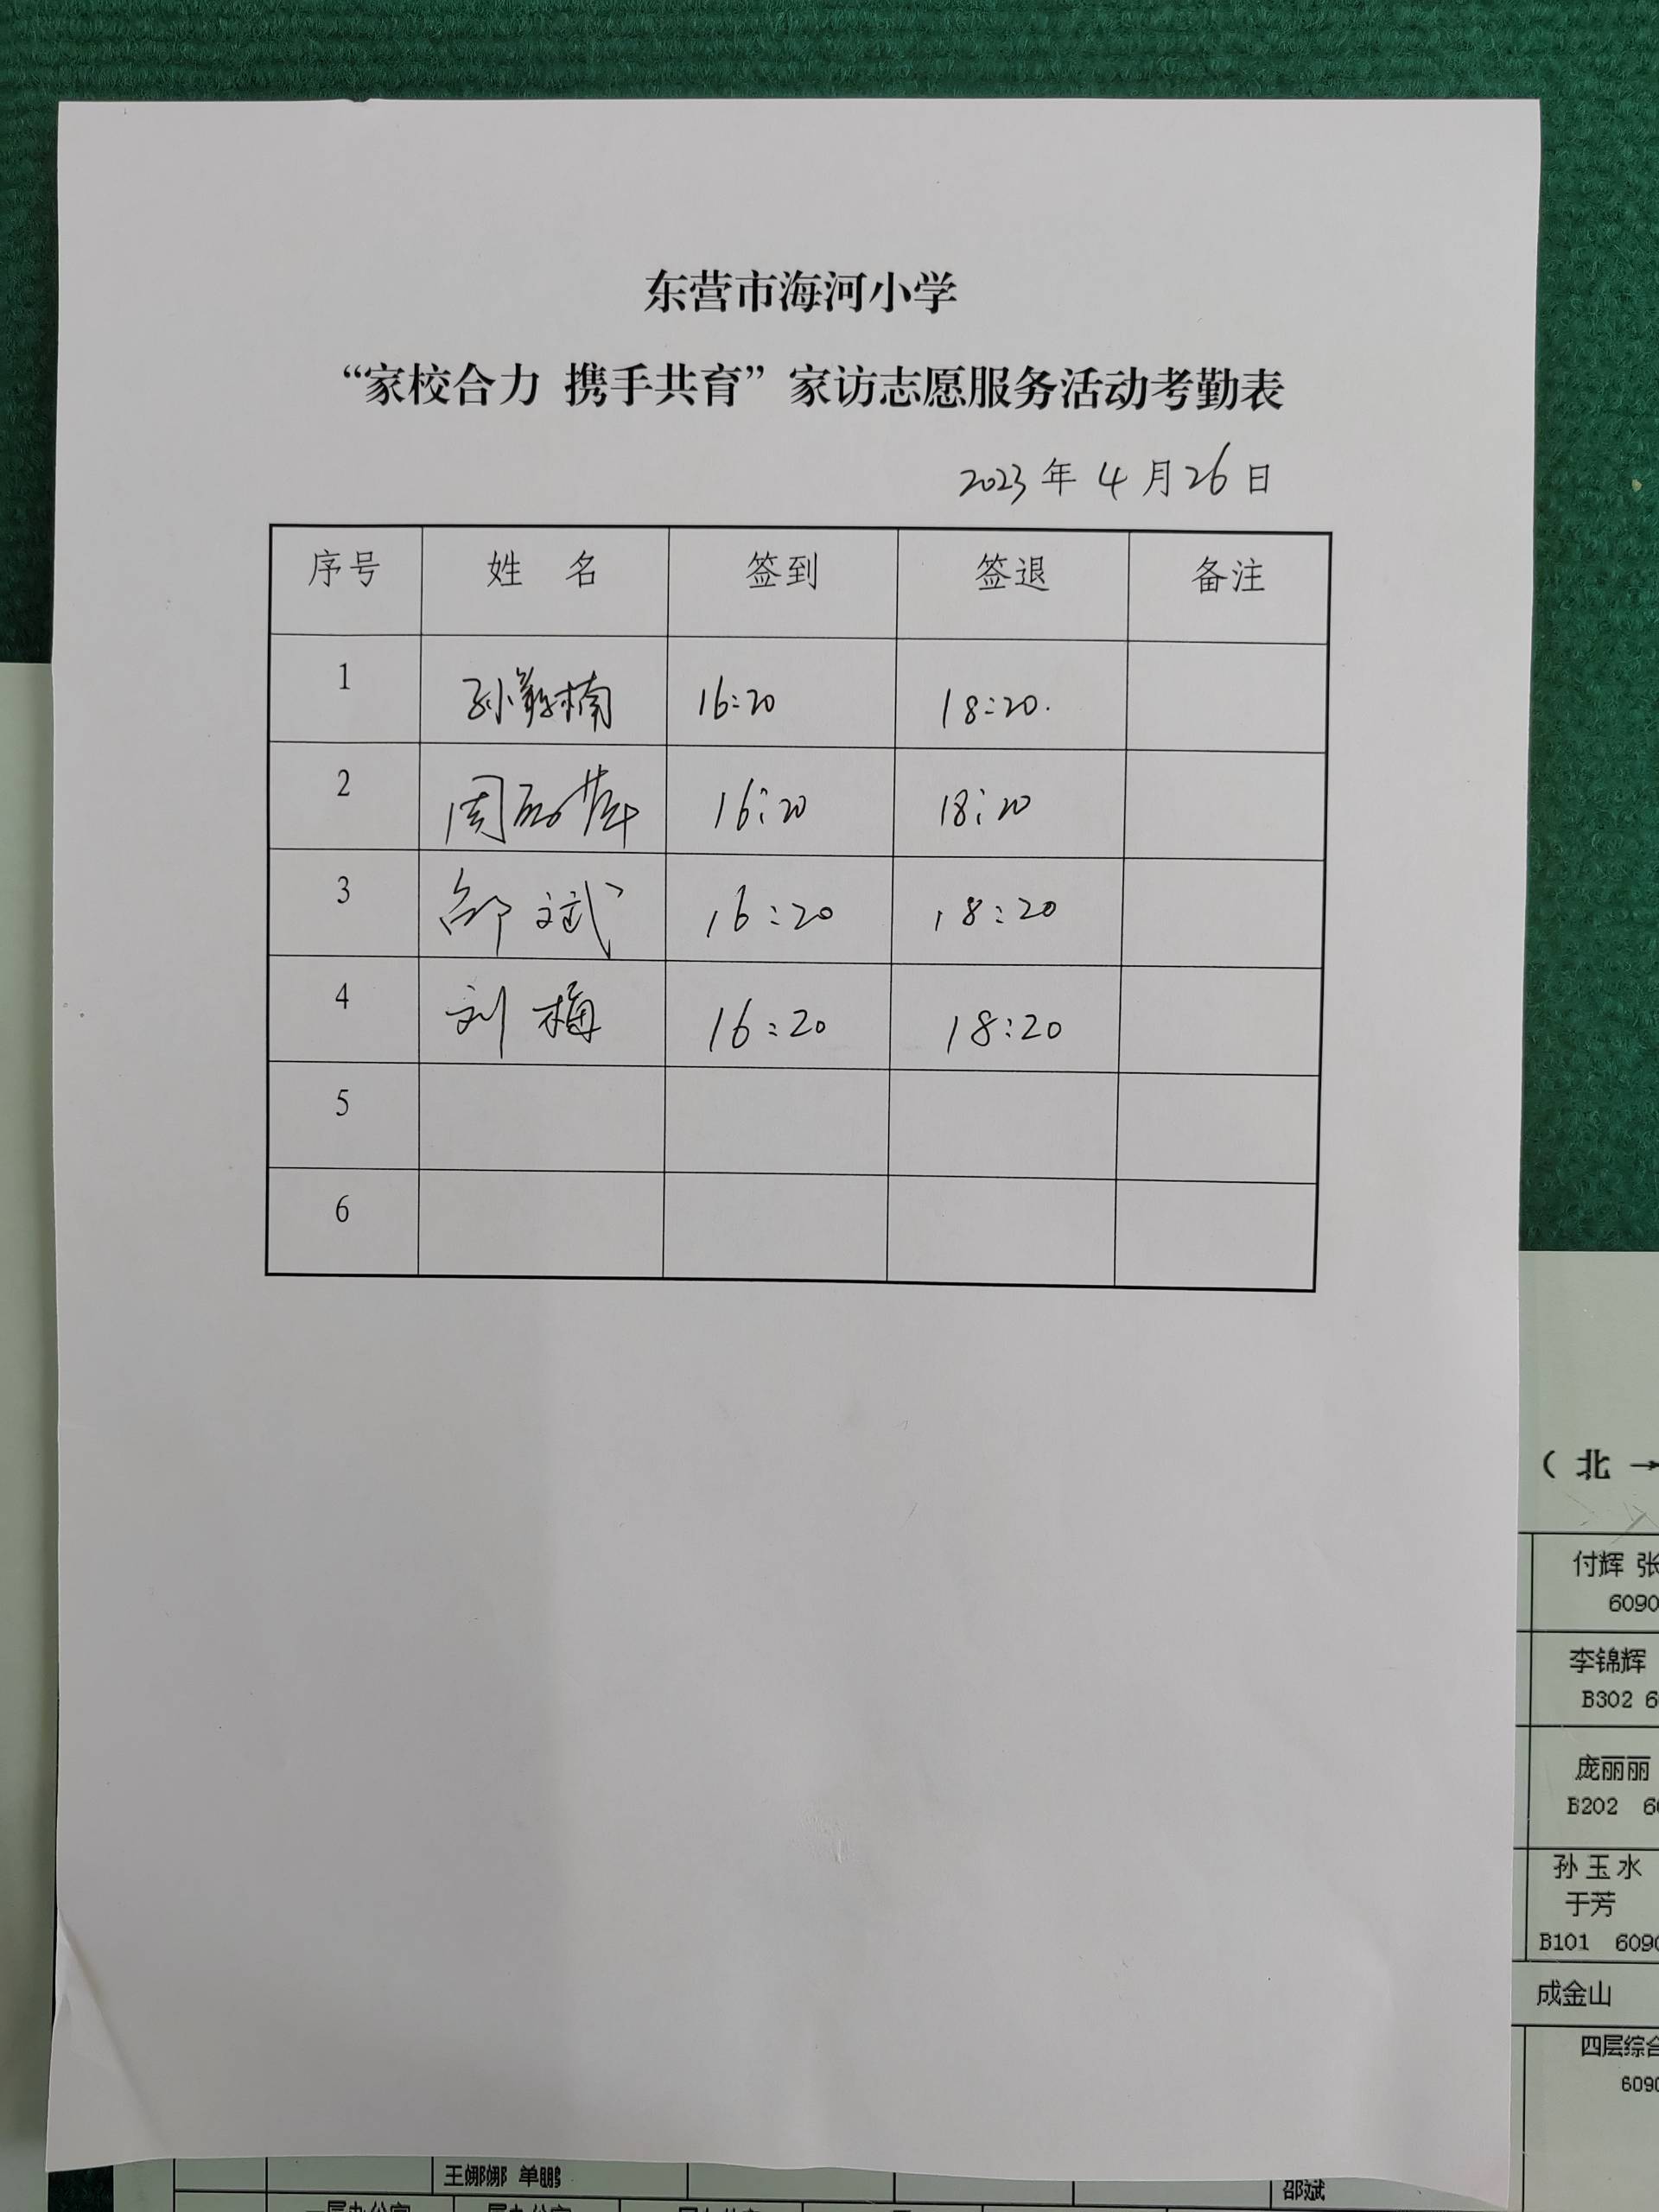 东营市海河小学
“家校合力 携手共育”家访志愿服务活动考勤表
2023年4月26日
序号 姓 名 签到 签退 备注
1 16:20 18:20.
2 16:20 18:20
3 邵斌 16:20 18:20
4 刘梅 16:20 18:20
5
6
（北→
付辉 张
6090
李锦辉
B302 6
庞丽丽
B202 60
孙玉水
于芳
B101 6090
成金山
四层综合
6090
王娜娜 单鹏
邵斌